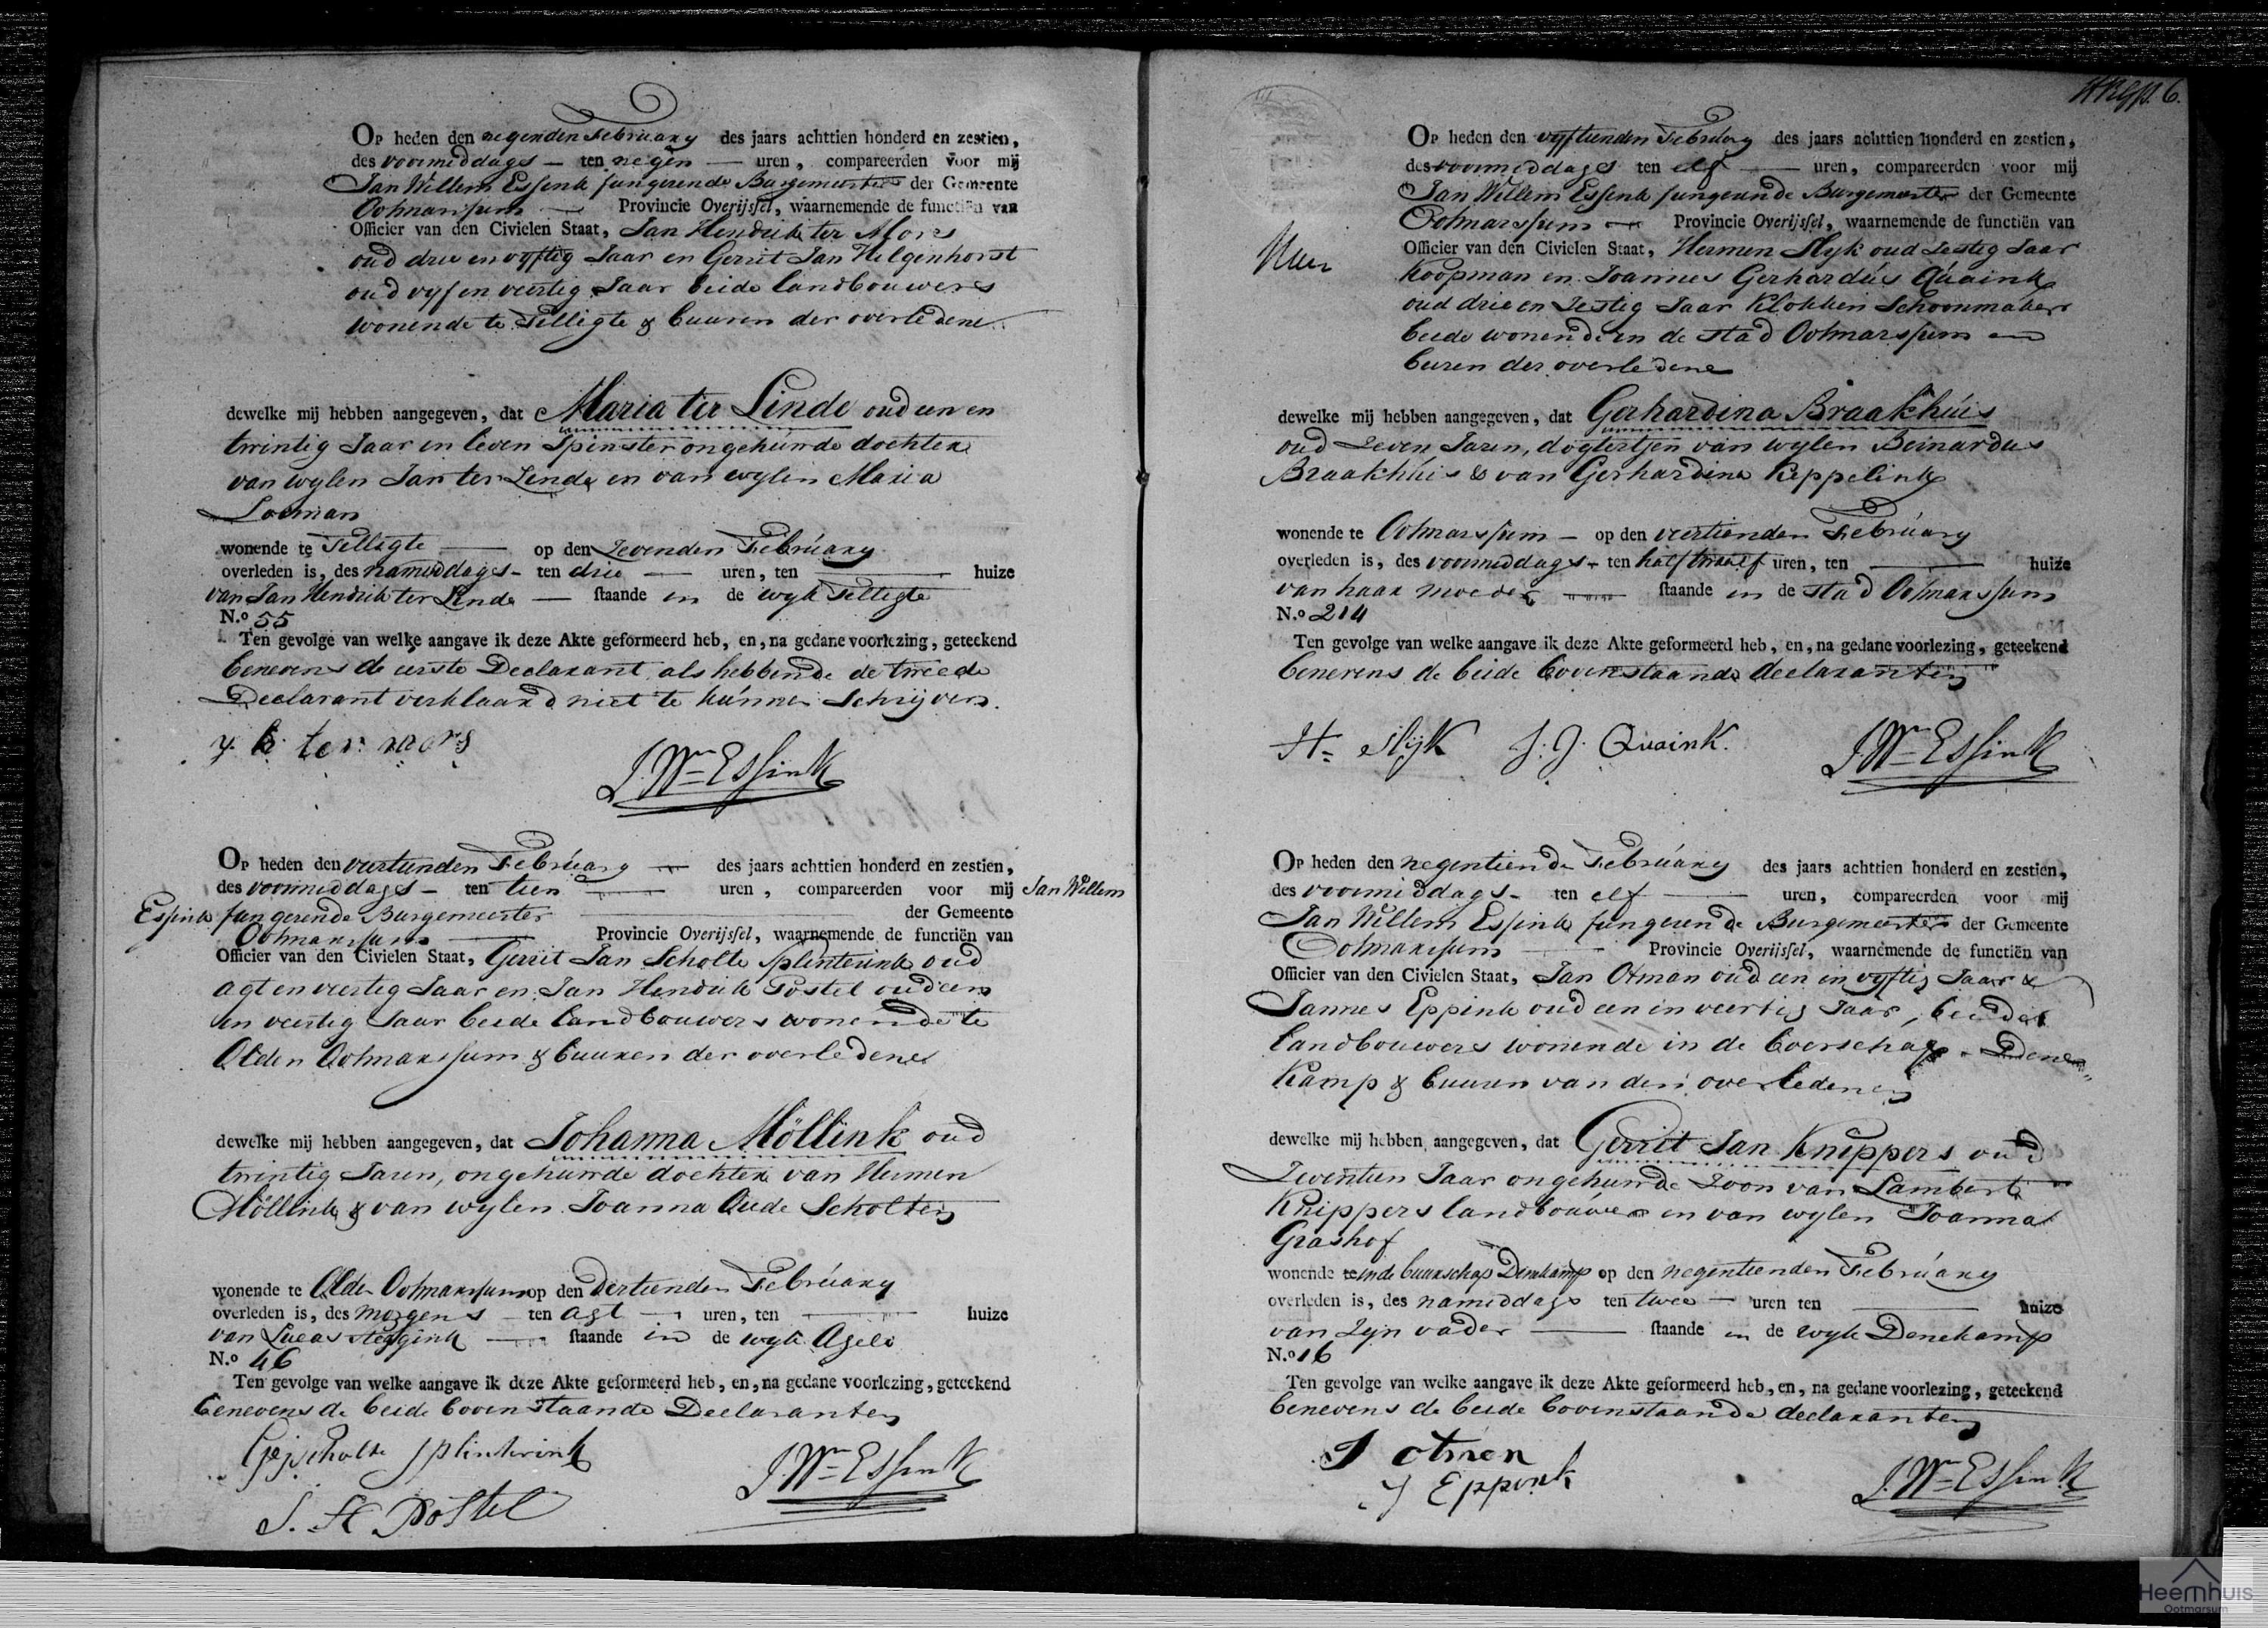 Op heden den negenden February des jaars achttien honderd en zestien,
des voormiddags — ten negen — uren, compareerden voor mij
Jan Willem Essink fungerende Burgemeester der Gemeente
Ootmarssum — Provincie Overijssel, waarnemende de functiën van
Officier van den Civielen Staat, Jan Hendrik ter Mors
oud drie en vyftig Jaar en Gerrit Jan Hilgenhorst
oud vyf en veertig Jaar beide landbouwers
wonende te Tilligte & buuren der overledene
dewelke mij hebben aangegeven, dat Maria ter Linde oud een en
twintig Jaar in leven Spinster ongehuwde dochter
van wylen Jan ter Linde en van wylen Maria
Looman
wonende te Tilligte — op den Zevenden February
overleden is, des namiddags - ten drie — uren, ten — huize
van Jan Hendrik ter Linde — staande in de wyk Tilligte
N.o 55
Ten gevolge van welke aangave ik deze Akte geformeerd heb, en, na gedane voorlezing, geteekend
benevens de eerste Declarant, als hebbende de tweede
Declarant verklaard niet te kunnen Schryven.
ter mors
J. Wm Essink
Op heden den veertienden February — des jaars achttien honderd en zestien,
des voormiddags — ten tien — uren, compareerden voor mij Jan Willem
Essink fungerende Burgemeester — der Gemeente
Ootmarssum — Provincie Overijssel, waarnemende de functiën van
Officier van den Civielen Staat, Gerrit Jan Scholte Splenterink oud
agt en veertig Jaar en Jan Hendrik Postel oud een
en veertig Jaar beide landbouwers wonende te
Olden Ootmarssum & buuren der overledene
dewelke mij hebben aangegeven, dat Johanna Möllink oud
twintig Jaren, ongehuwde dochter van Hermen
Möllink & van wylen Joanna Oude Scholten
wonende te Olden Ootmarssum op den dertienden February
overleden is, des morgens — ten agt — uren, ten — huize
van Lucas Steggink — staande in de wyk Agelo
N.o 46
Ten gevolge van welke aangave ik deze Akte geformeerd heb, en, na gedane voorlezing, geteekend
benevens de beide bovenstaande Declaranten
Scholte Splinterink
J. H Postel
J. Wm Essink
6.
Op heden den vyftienden February des jaars achttien honderd en zestien,
des voormiddags ten elf — uren, compareerden voor mij
Jan Willem Essink fungeerende Burgemeester der Gemeente
Ootmarssum — Provincie Overijssel, waarnemende de functiën van
Officier van den Civielen Staat, Hermen Slyk oud Zestig Jaar
Koopman en Joannes Gerhardus Quaink
oud drie en Zestig Jaar Klokken Schoonmaker
beide wonende in de stad Ootmarssum en
buren der overledene
dewelke mij hebben aangegeven, dat Gerhardina Braakhuis
oud Zeven Jaren, dogtertjen van wylen Bernardus
Braakhuis & van Gerhardina Keppelink
wonende te Ootmarssum — op den veertienden February
overleden is, des voormiddags - ten half twaalf uren, ten — huize
van haar moeder — staande in de stad Ootmarssum
N.o 214
Ten gevolge van welke aangave ik deze Akte geformeerd heb, en, na gedane voorlezing, geteekend
benevens de beide bovenstaande declaranten
H= Slijk J. G. Quaink.
J. Wm Essink
Op heden den negentiende February des jaars achttien honderd en zestien,
des voormiddags — ten elf — uren, compareerden voor mij
Jan Willem Essink fungerende Burgemeester der Gemeente
Ootmarssum — Provincie Overijssel, waarnemende de functiën van
Officier van den Civielen Staat, Jan Otman oud een en vyftig Jaar &
Jannes Eppink oud een en veertig Jaar, beide
landbouwers wonende in de boerschap Dene
kamp & buuren van den overledenen
dewelke mij hebben aangegeven, dat Gerrit Jan Knippers oud
Zeventien Jaar ongehuwde Zoon van Lambert
Knippers landbouwer en van wylen Joanna
Grashof
wonende te in de buurschap Denekamp op den negentienden February
overleden is, des namiddags ten twee — uren ten — huize
van Zyn vader — staande in de wyk Denekamp
N.o 16
Ten gevolge van welke aangave ik deze Akte geformeerd heb, en, na gedane voorlezing, geteekend
benevens de beide bovenstaande declaranten
J otmen
J Eppink
J. Wm Essink
Heemhuis
Ootmarsum